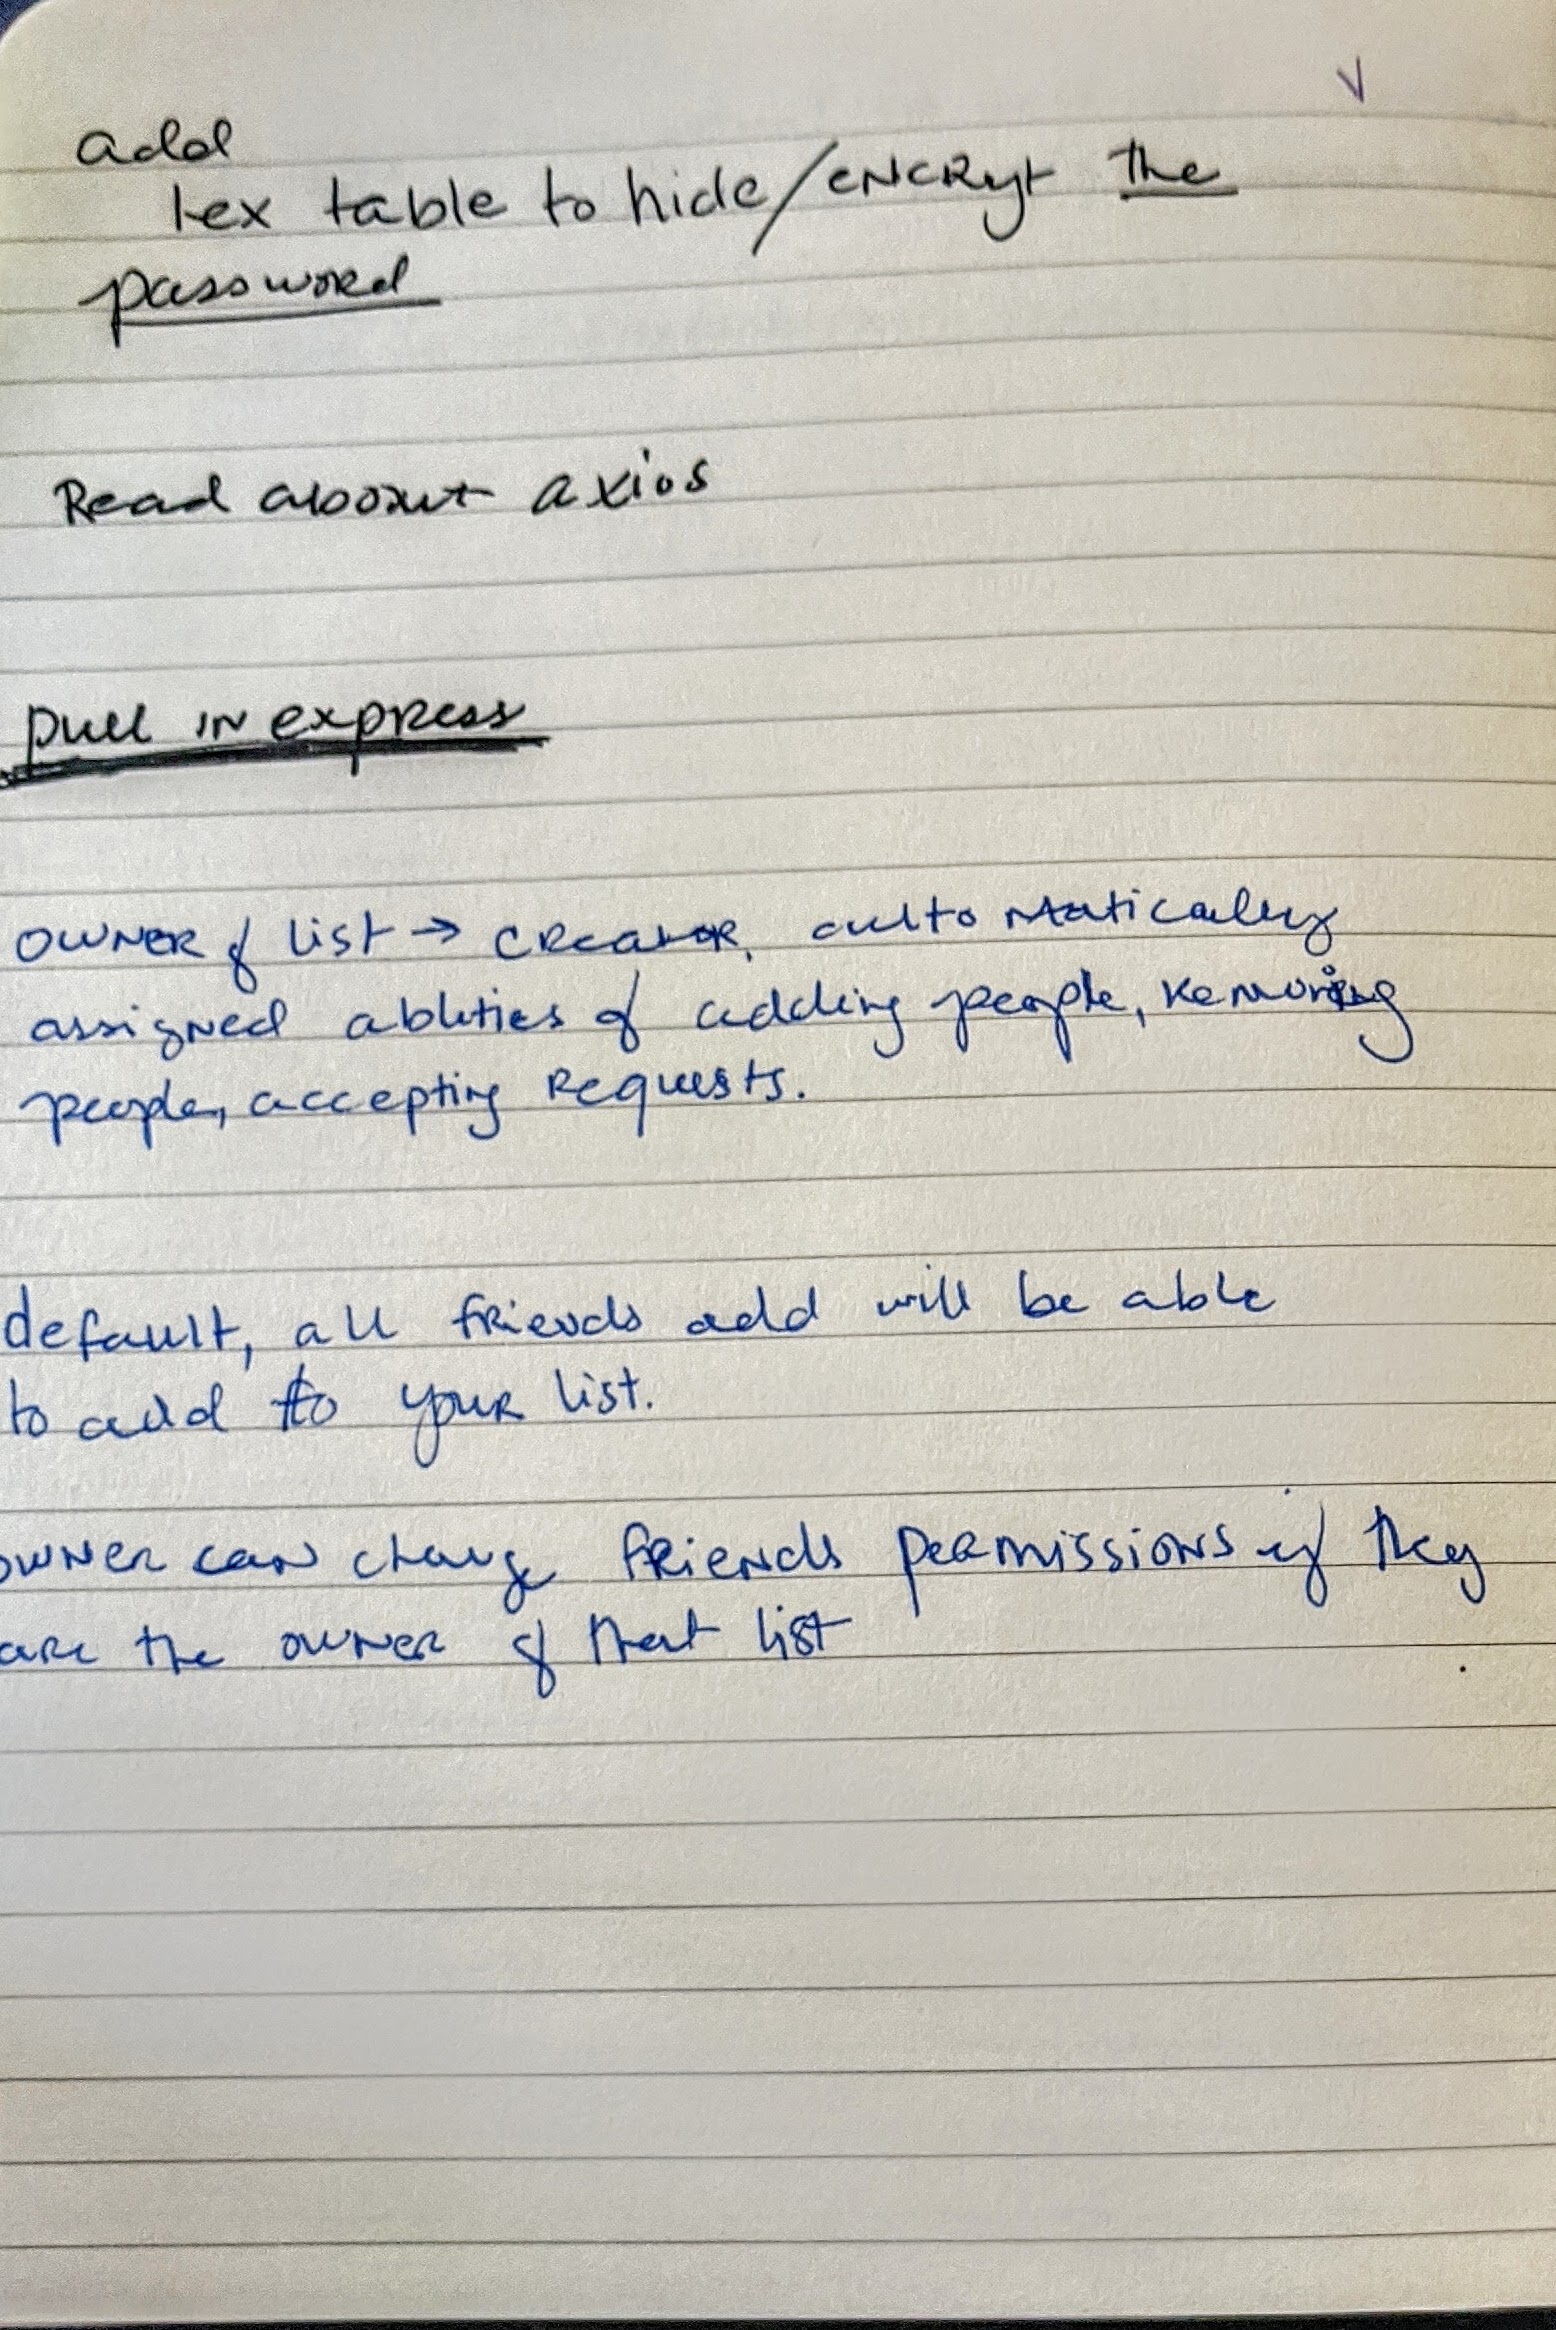 add
tex table to hide/encryt the
password
Read about axios
pull in express
owner of list → creator, automatically
assigned ablities of adding people, removing
people, accepting requests.
default, all friends add will be able
to add to your list.
owner can change friends permissions if they
are the owner of that list